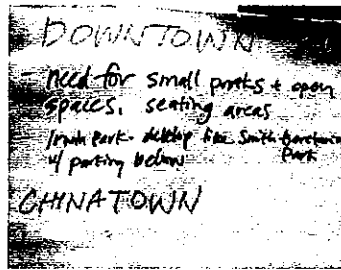 DOWNTOWN
- need for small parks + open
spaces, seating areas
Park - develop like Smith
Park
w/ parking below
CHINATOWN